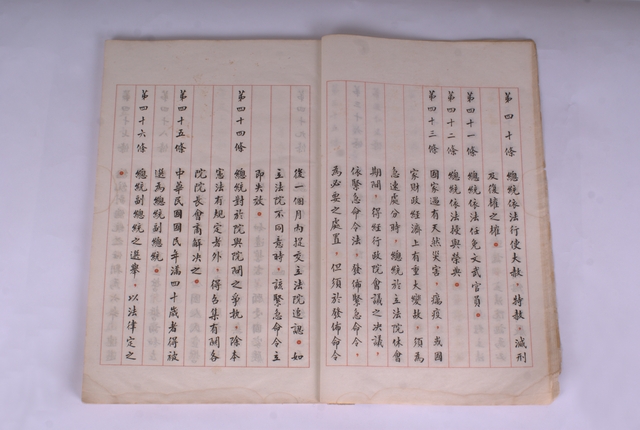 第四十條　總統依法行使大赦，特赦，減刑
及復權之權。
第四十一條　總統依法任免文武官員。
第四十二條　總統依法授與榮典。
第四十三條　國家遇有天然災害，癘疫，或國
家財政經濟上有重大變故，須為
急速處分時，總統於立法院休會
期間，得經行政院會議之決議，
依緊急命令法，發佈緊急命令，
為必要之處置，但須於發佈命令
後一個月內提交立法院追認。如
立法院不同意時，該緊急命令立
即失效。
第四十四條　總統對於院與院間之爭執，除本
憲法有規定者外，得召集有關各
院院長會商解決之。
第四十五條　中華民國國民年滿四十歲者得被
選為總統副總統。
第四十六條　總統副總統之選舉，以法律定之
。